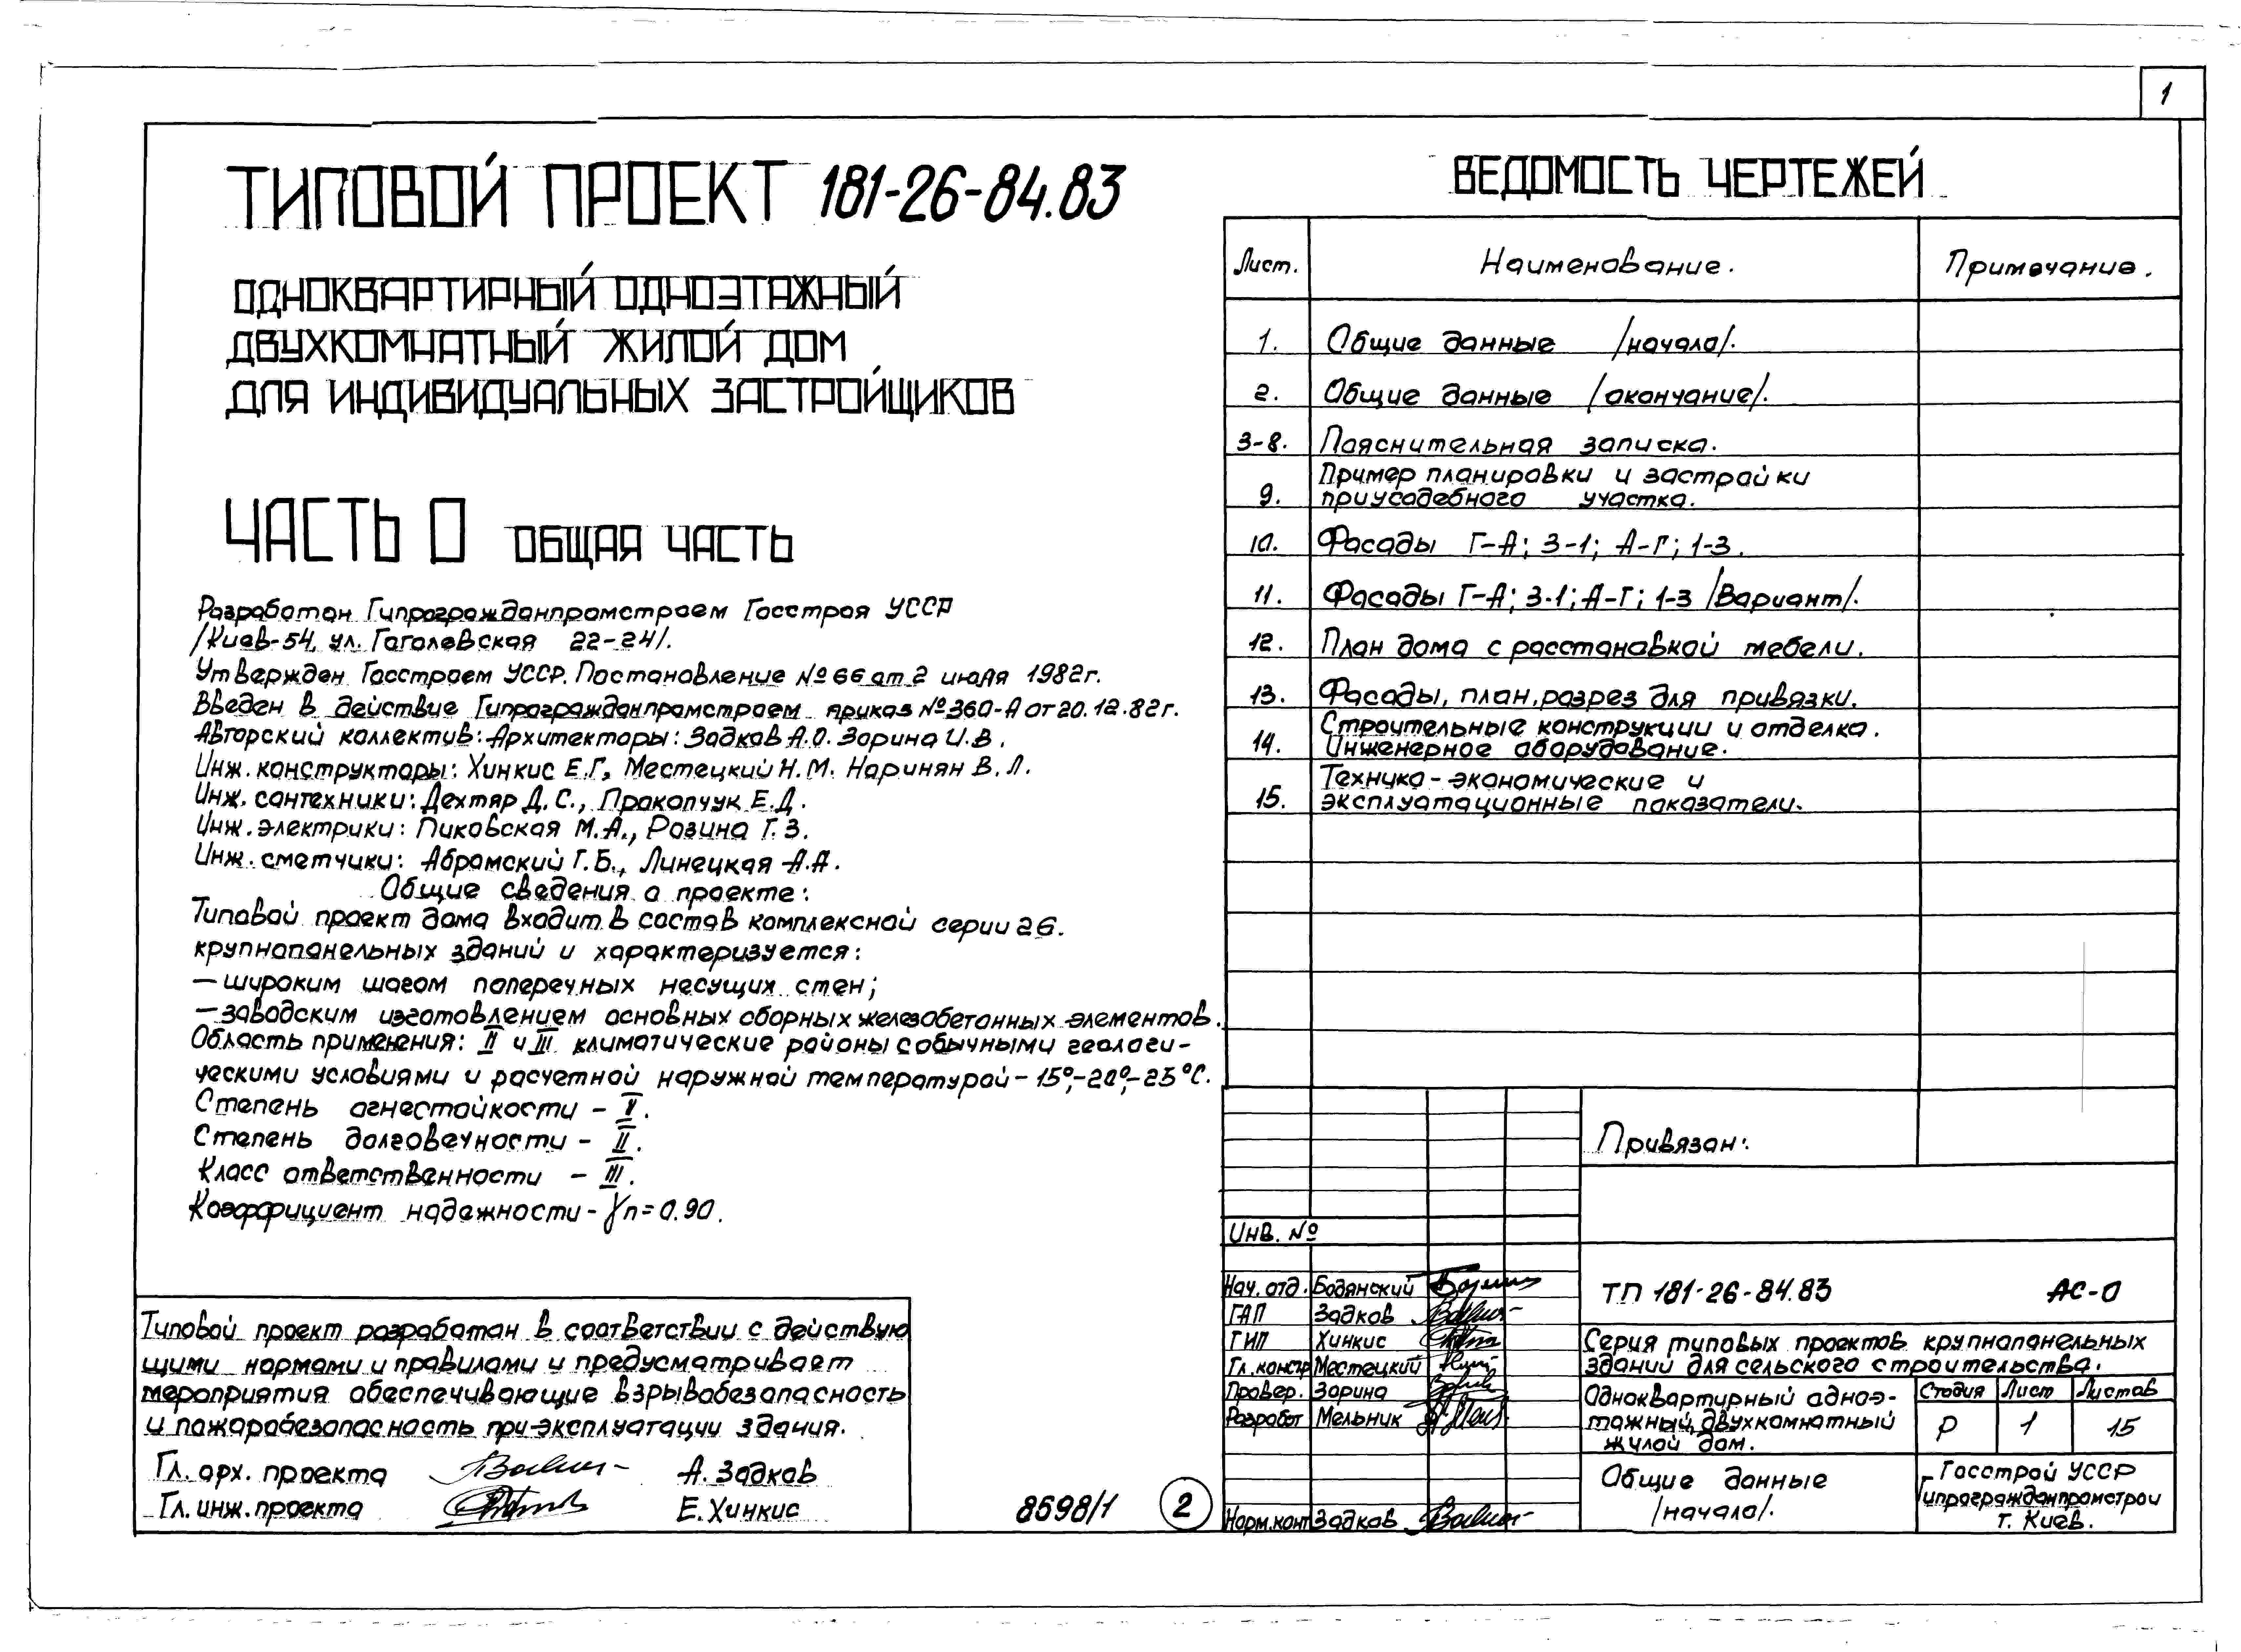 1
ТИПОВОЙ ПРОЕКТ 181-26-84.83
ОДНОКВАРТИРНЫЙ ОДНОЭТАЖНЫЙ
ДВУХКОМНАТНЫЙ ЖИЛОЙ ДОМ
ДЛЯ ИНДИВИДУАЛЬНЫХ ЗАСТРОЙЩИКОВ
ЧАСТЬ 0 ОБЩАЯ ЧАСТЬ
Разработан Гипрогражданпромстроем Госстроя УССР
/Киев-54, ул. Гоголевская 22-24/.
Утвержден Госстроем УССР. Постановление № 66 от 2 июля 1982г.
Введен в действие Гипрогражданпромстроем приказ № 360-А от 20.12.82г.
Авторский коллектив: Архитекторы: Задков А.О. Зорина И.В.
Инж. конструкторы: Хинкис Е.Г, Местецкий Н.М. Наринян В.Л.
Инж. сантехники: Дехтяр Д.С., Прокопчук Е.Д.
Инж. электрики: Пиковская М.А., Розина Г.З.
Инж. сметчики: Абрамский Г.Б., Линецкая А.А.
Общие сведения о проекте:
Типовой проект дома входит в состав комплексной серии 26.
крупнопанельных зданий и характеризуется:
— широким шагом поперечных несущих стен;
— заводским изготовлением основных сборных железобетонных элементов.
Область применения: II и III климатические районы с обычными геологи-
ческими условиями и расчетной наружной температурой - 15°,-20°,-25°С.
Степень огнестойкости - V.
Степень долговечности - II.
Класс ответственности - III.
Коэффициент надежности - γn = 0.90.
Типовой проект разработан в соответствии с действую
щими нормами и правилами и предусматривает
мероприятия обеспечивающие взрывобезопасность
и пожаробезопасность при эксплуатации здания.
Гл. арх. проекта А. Задков
Гл. инж. проекта Е. Хинкис
8598/1 2
ВЕДОМОСТЬ ЧЕРТЕЖЕЙ
Лист. Наименование. Примечание.
1. Общие данные /начало/.
2. Общие данные /окончание/.
3-8. Пояснительная записка.
Пример планировки и застройки
9. приусадебного участка.
10. Фасады Г-А; 3-1; А-Г; 1-3.
11. Фасады Г-А; 3-1; А-Г; 1-3 /Вариант/.
12. План дома с расстановкой мебели.
13. Фасады, план, разрез для привязки.
Строительные конструкции и отделка.
14. Инженерное оборудование.
Технико-экономические и
15. эксплуатационные показатели.
Привязан:
Инв. №
Нач. отд. Бодянский
ГАП Задков
ГИП Хинкис
Гл. констр Местецкий
Провер. Зорина
Разработ Мельник
Норм.конт Задков
ТП 181-26-84.83 АС-0
Серия типовых проектов крупнопанельных
зданий для сельского строительства.
Одноквартирный одноэ-
тажный, двухкомнатный
жилой дом.
Стадия Лист Листов
Р 1 15
Общие данные
/начало/.
Госстрой УССР
Гипрогражданпромстрой
г. Киев.